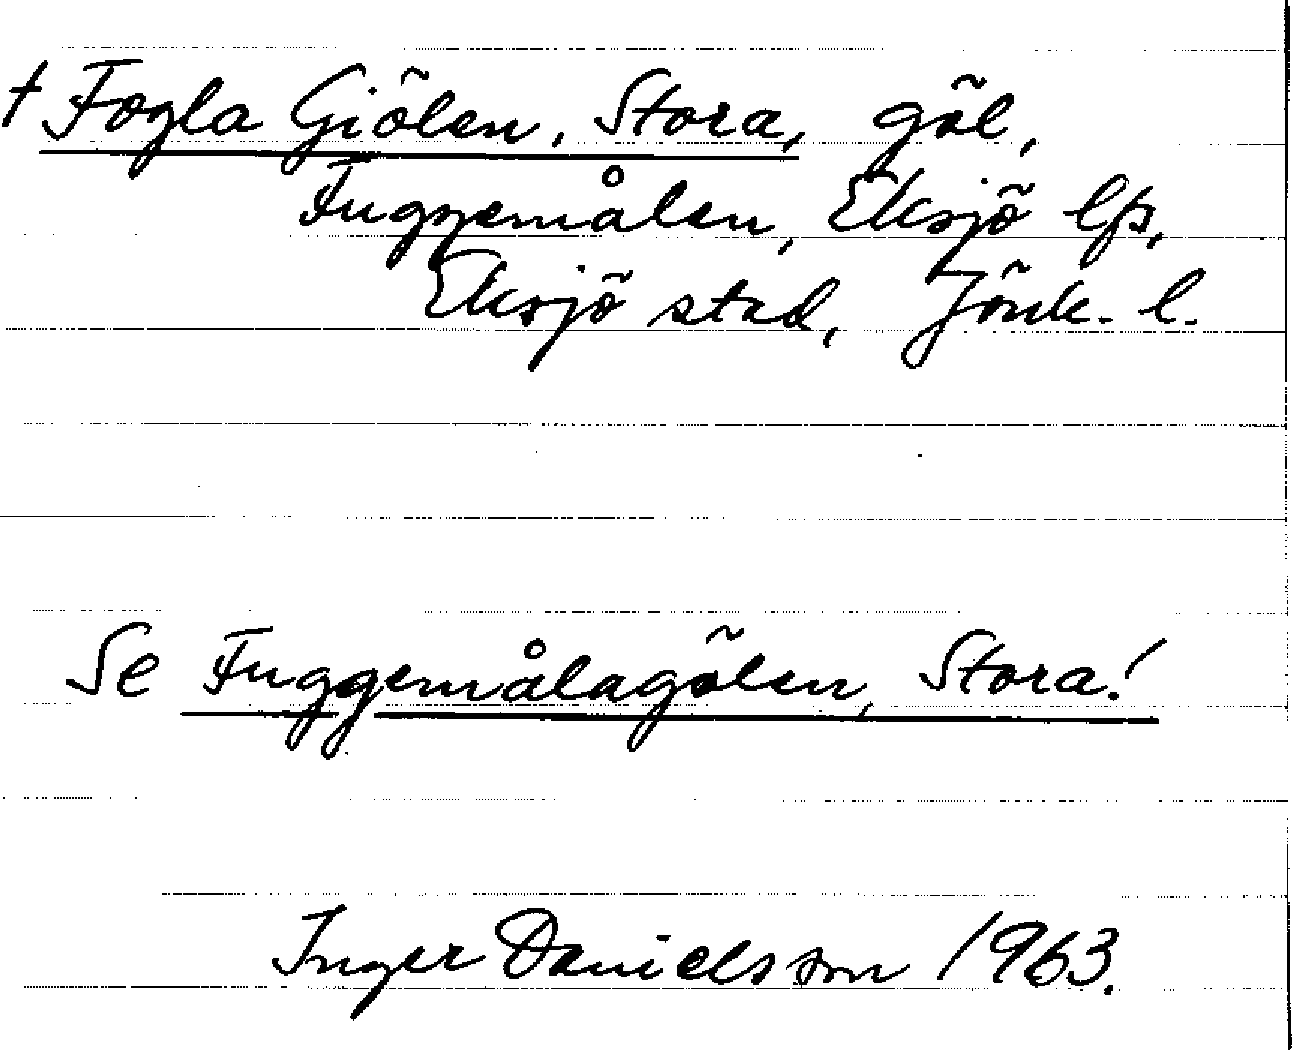 † Fogla Giölen, Stora, göl,
Fuggemålen, Eksjö lfs,
Eksjö stad, Jönk. l.
Se Fuggemålagölen, Stora!
Inger Danielsson 1963.